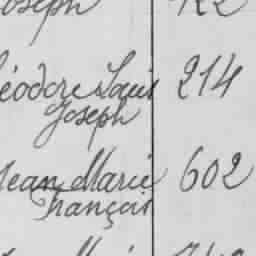 Joseph 122
éodore Louis 214
Joseph
Jean Marie 602
François